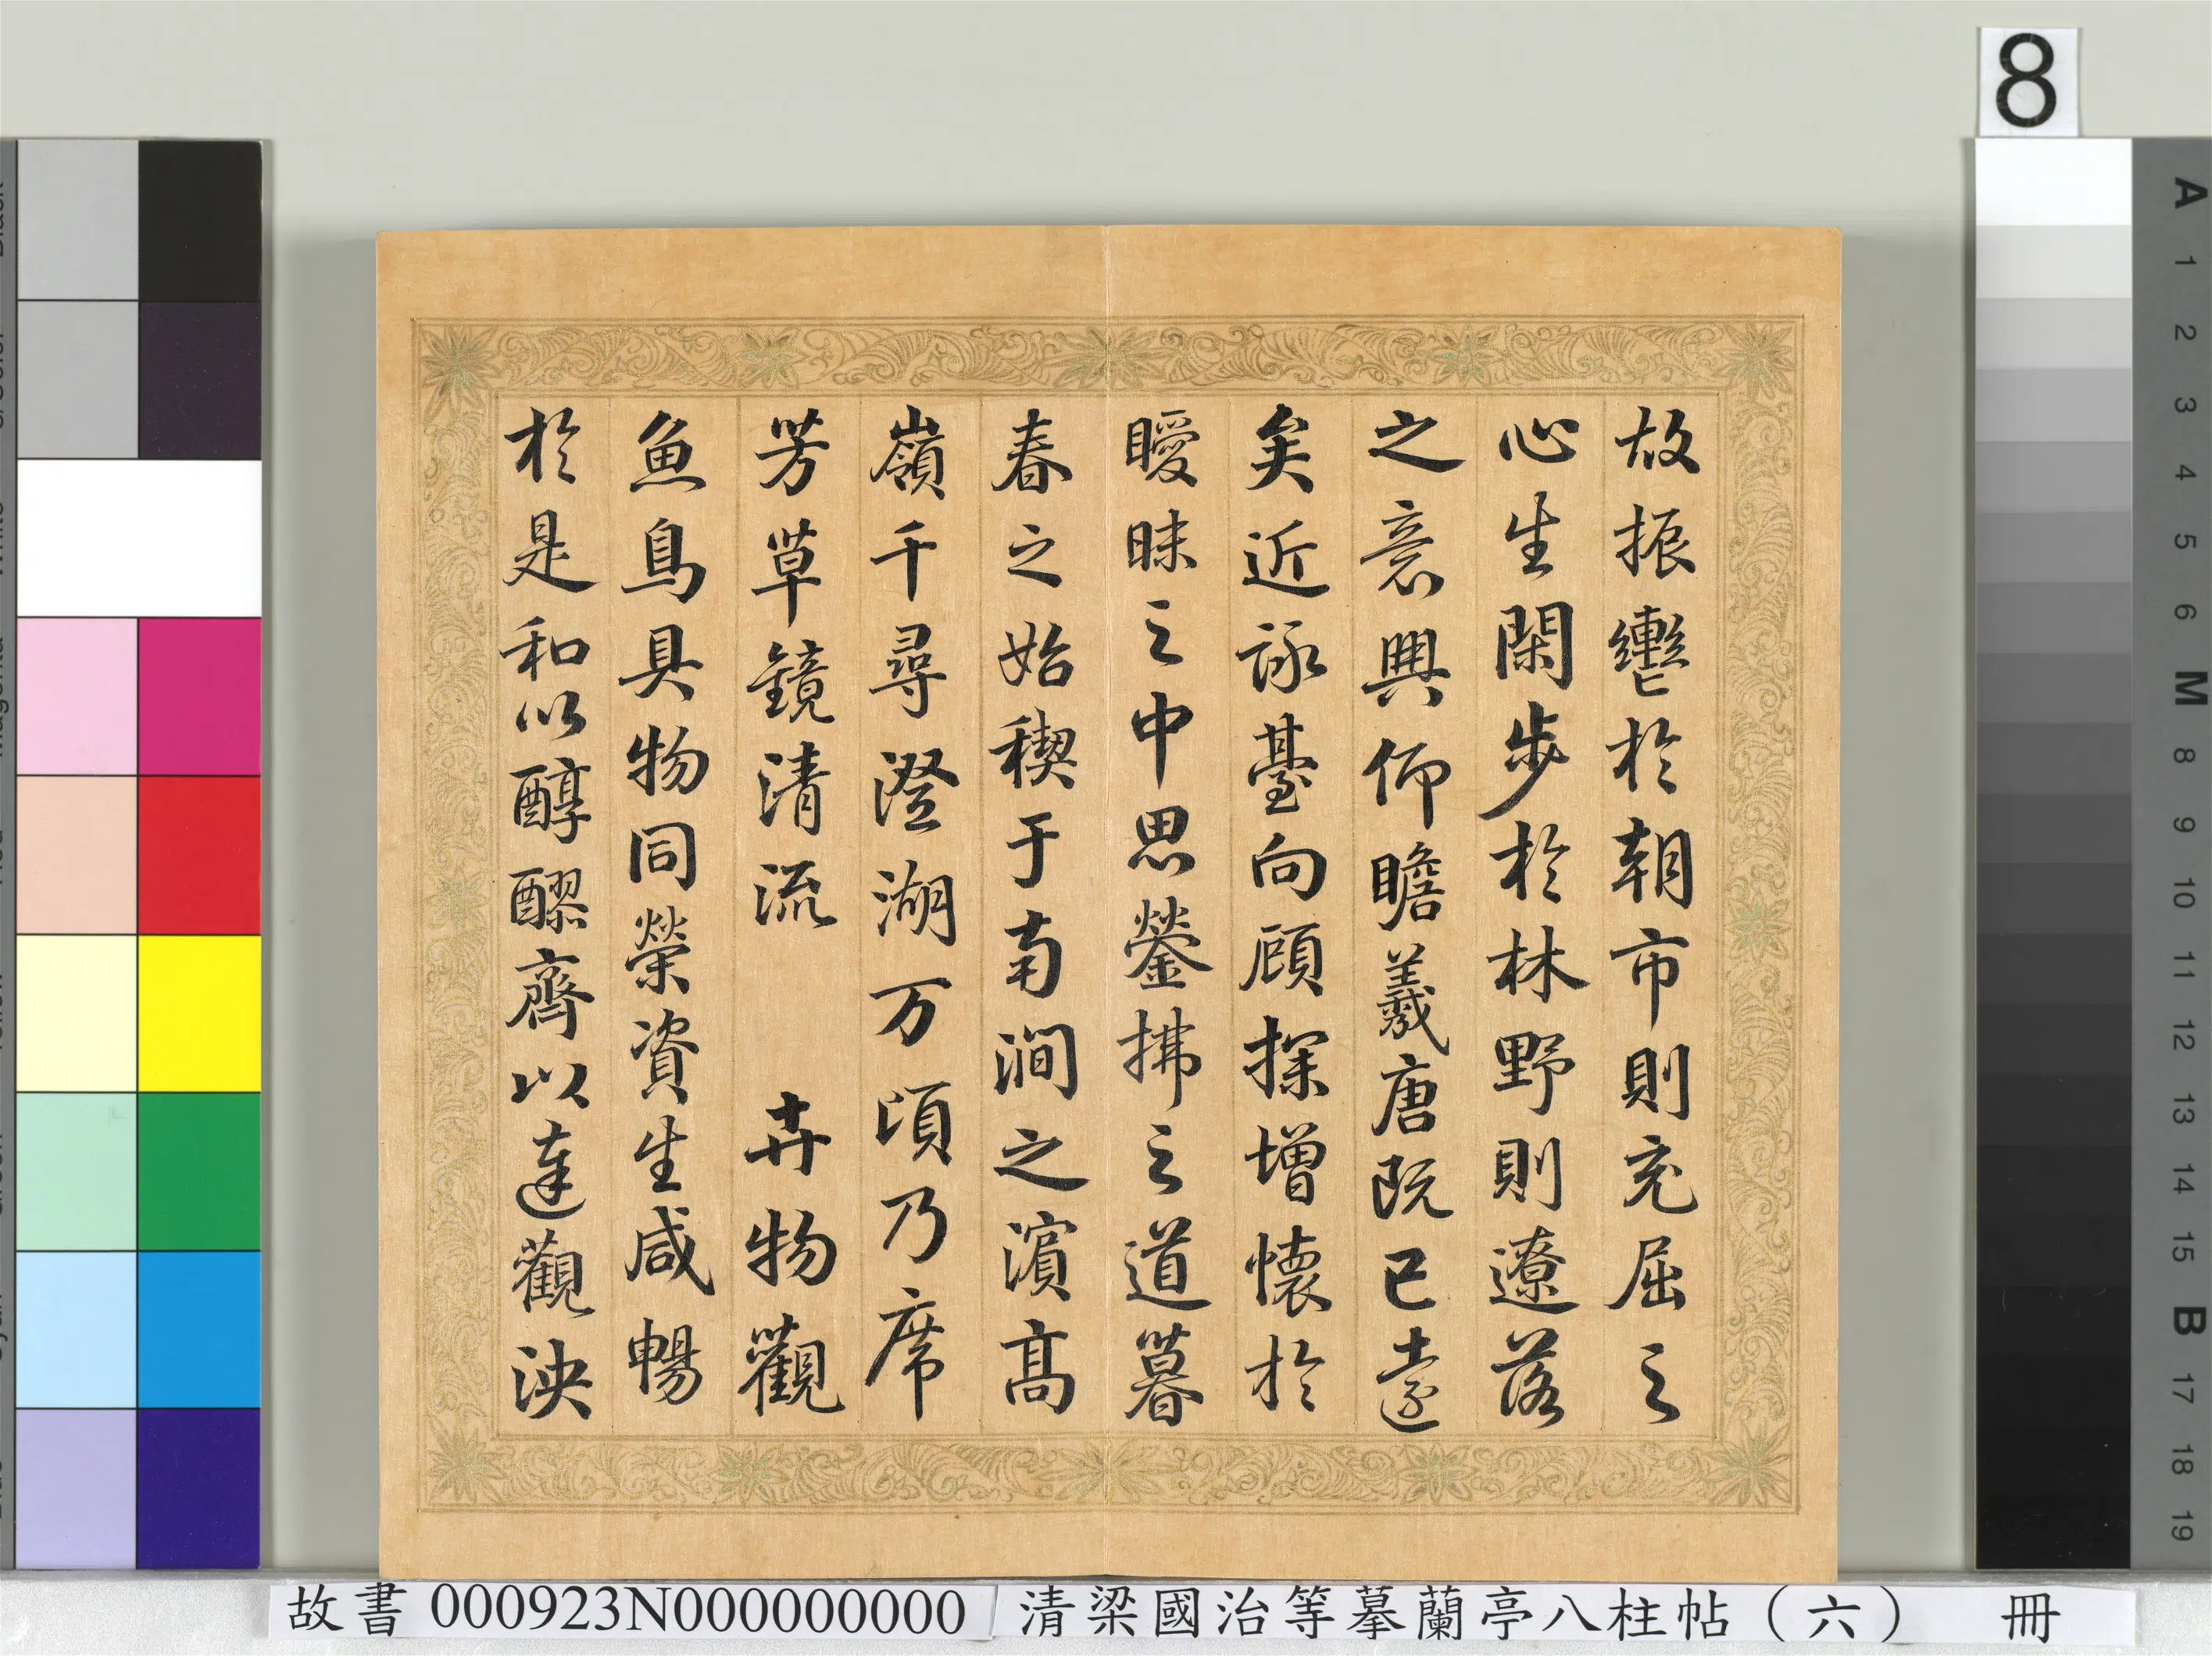 8
故振轡於朝市則充屈之
心生閑步於林野則遼落
之意興仰瞻羲唐既已遠
矣近詠臺向顧探增懷於
曖昧之中思鎣拂之道暮
春之始稧于南澗之濱高
嶺千尋澄湖万頃乃席
芳草鏡清流 卉物觀
魚鳥具物同榮資生咸暢
於是和以醇醪齊以達觀泱
A 1 2 3 4 5 6 M 8 9 10 11 12 13 14 15 B 17 18 19
故書 000923N000000000 清梁國治等摹蘭亭八柱帖（六） 冊